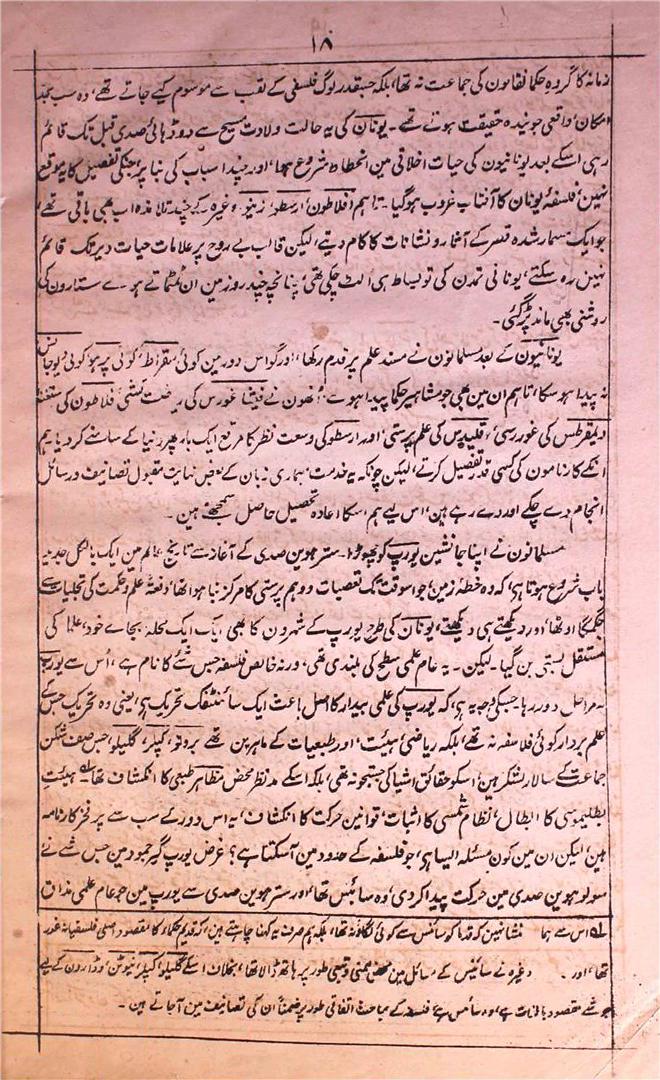 ۱۸
زمانہ کا گروہِ حکما نقالون کی جماعت نہ تھا، بلکہ جسقدر لوگ فلسفی کے لقب سے موسوم کیے جاتے تھے، وہ سب بحد
امکان، واقعی جویندہ حقیقت ہوتے تھے۔ یونان کی یہ حالت ولادت مسیح سے دو ڈہائی صدی قبل تک قائم
رہی اسکے بعد یونانیون کی حیات اخلاقی مین انحطاط شروع ہوا، اور چند اسباب کی بنا پر جنکی تفصیل کا یہ موقع
نہین، فلسفۂ یونان کا آفتاب غروب ہوگیا۔ تاہم افلاطون، ارسطو، زینو، وغیرہ کے چند تلامذہ اب بھی باقی تھے،
جو ایک مسمار شدہ قصر کے آثار و نشانات کا کام دیتے، لیکن قالب بے روح پر علامات حیات دیر تک قائم
نہین رہ سکتے، یونانی تمدن کی تو بساط ہی الٹ چکی تھی، چنانچہ چند روز مین ان ٹمٹماتے ہوے ستارون کی
روشنی بھی ماند پڑ گئی۔
یونانیون کے بعد مسلمانون نے مسند علم پر قدم رکھا، اور گو اس دور مین کوئی سقراط، کوئی پرہو، کوئی دیوجانس
نہ پیدا ہو سکا، تاہم ان مین بھی جو مشاہیر حکما پیدا ہوے، اُنھون نے فیثا غورس کی ریاضت کشی، فلاطون کی
دیمقرطس کی غور رسی، اقلیدس کی علم پرستی، اور ارسطو کی وسعت نظر کا مرقع ایک بار پھر دنیا کے سامنے کر دیا، ہم
انکے کارنامون کی کسی قدر تفصیل کرتے، لیکن چونکہ یہ خدمت، ہماری زبان کے بعض نہایت مقبول تصانیف و رسائل
انجام دے چکے اور دے رہے ہین، اس لیے ہم اسکا اعادہ تحصیل حاصل سمجھتے ہین۔
مسلمانون نے اپنا جانشین یورپ کو چھوڑا۔ سترھوین صدی کے آغاز سے تاریخ عالم مین ایک بالکل جدید
باب شروع ہوتا ہے، کہ وہ خطہ زمین، جو اسوقت تک تعصبات و وہم پرستی کا مرکز بنا ہوا تھا، دفعتۂ علم و حکمت کی تجلیات سے
جگمگا اوٹھا، اور دیکھتے ہی دیکھتے، یونان کی طرح یورپ کے شہرون کا بھی ایک ایک محلہ بجاے خود، علما کی
مستقل بستی بن گیا۔ لیکن۔ یہ عام علمی سطح کی بلندی تھی، ورنہ خالص فلسفہ جس شے کا نام ہے، اُس سے یورپ
مراحل دور رہا، جسکی وجہ یہ ہے، کہ یورپ کی علمی بیداری کا اصل باعث ایک سائنٹفک تحریک ہے، یعنی وہ تحریک جسکے
علم بردار کوئی فلاسفہ نہ تھے، بلکہ ریاضی، ہیئت، اور طبعیات کے ماہرین تھے۔ برونو، کپلر، گلیلو، جس صف شکن
جماعت کے سالار لشکر ہین، اسکو حقائق اشیا کی جستجو نہ تھی، بلکہ اسکے مد نظر محض مظاہر طبعی کا انکشاف تھا، ہیئتِ
بطلیموسی کا ابطال، نظام شمسی کا اثبات، قوانین حرکت کا انکشاف، یہ اس دور کے سب سے پر فخر کارنامہ
ہین، لیکن ان مین کون مسئلہ ایسا ہے، جو فلسفہ کے حدود مین آسکتا ہے؟ غرض یورپ گیر جمود مین جس شے نے
سولہوین صدی مین حرکت پیدا کردی، وہ سائنس تھا، اور سترھوین صدی سے یورپ مین جو عام علمی مذاق
لہ اس سے ہمارا منشا نہین کہ قدما کو سائنس سے کوئی لگاؤ نہ تھا، بلکہ ہم صرف یہ کہنا چاہتے ہین، کہ قدیم حکماء کا مقصود اصلی فلسفیانہ غور
تھا، اور۔ وغیرہ نے سائنس کے مسائل مین محض ضمنی و تبعی طور پر ہاتھ ڈالا تھا، بخلاف اسکے گلیلو، کپلر، نیوٹن، و ڈارون کے لیے
جو شے مقصود بالذات ہے، وہ سائنس ہے، فلسفہ کے مباحث اتفاقی طور پر ضمناً ان کی تصانیف مین آجاتے ہین۔